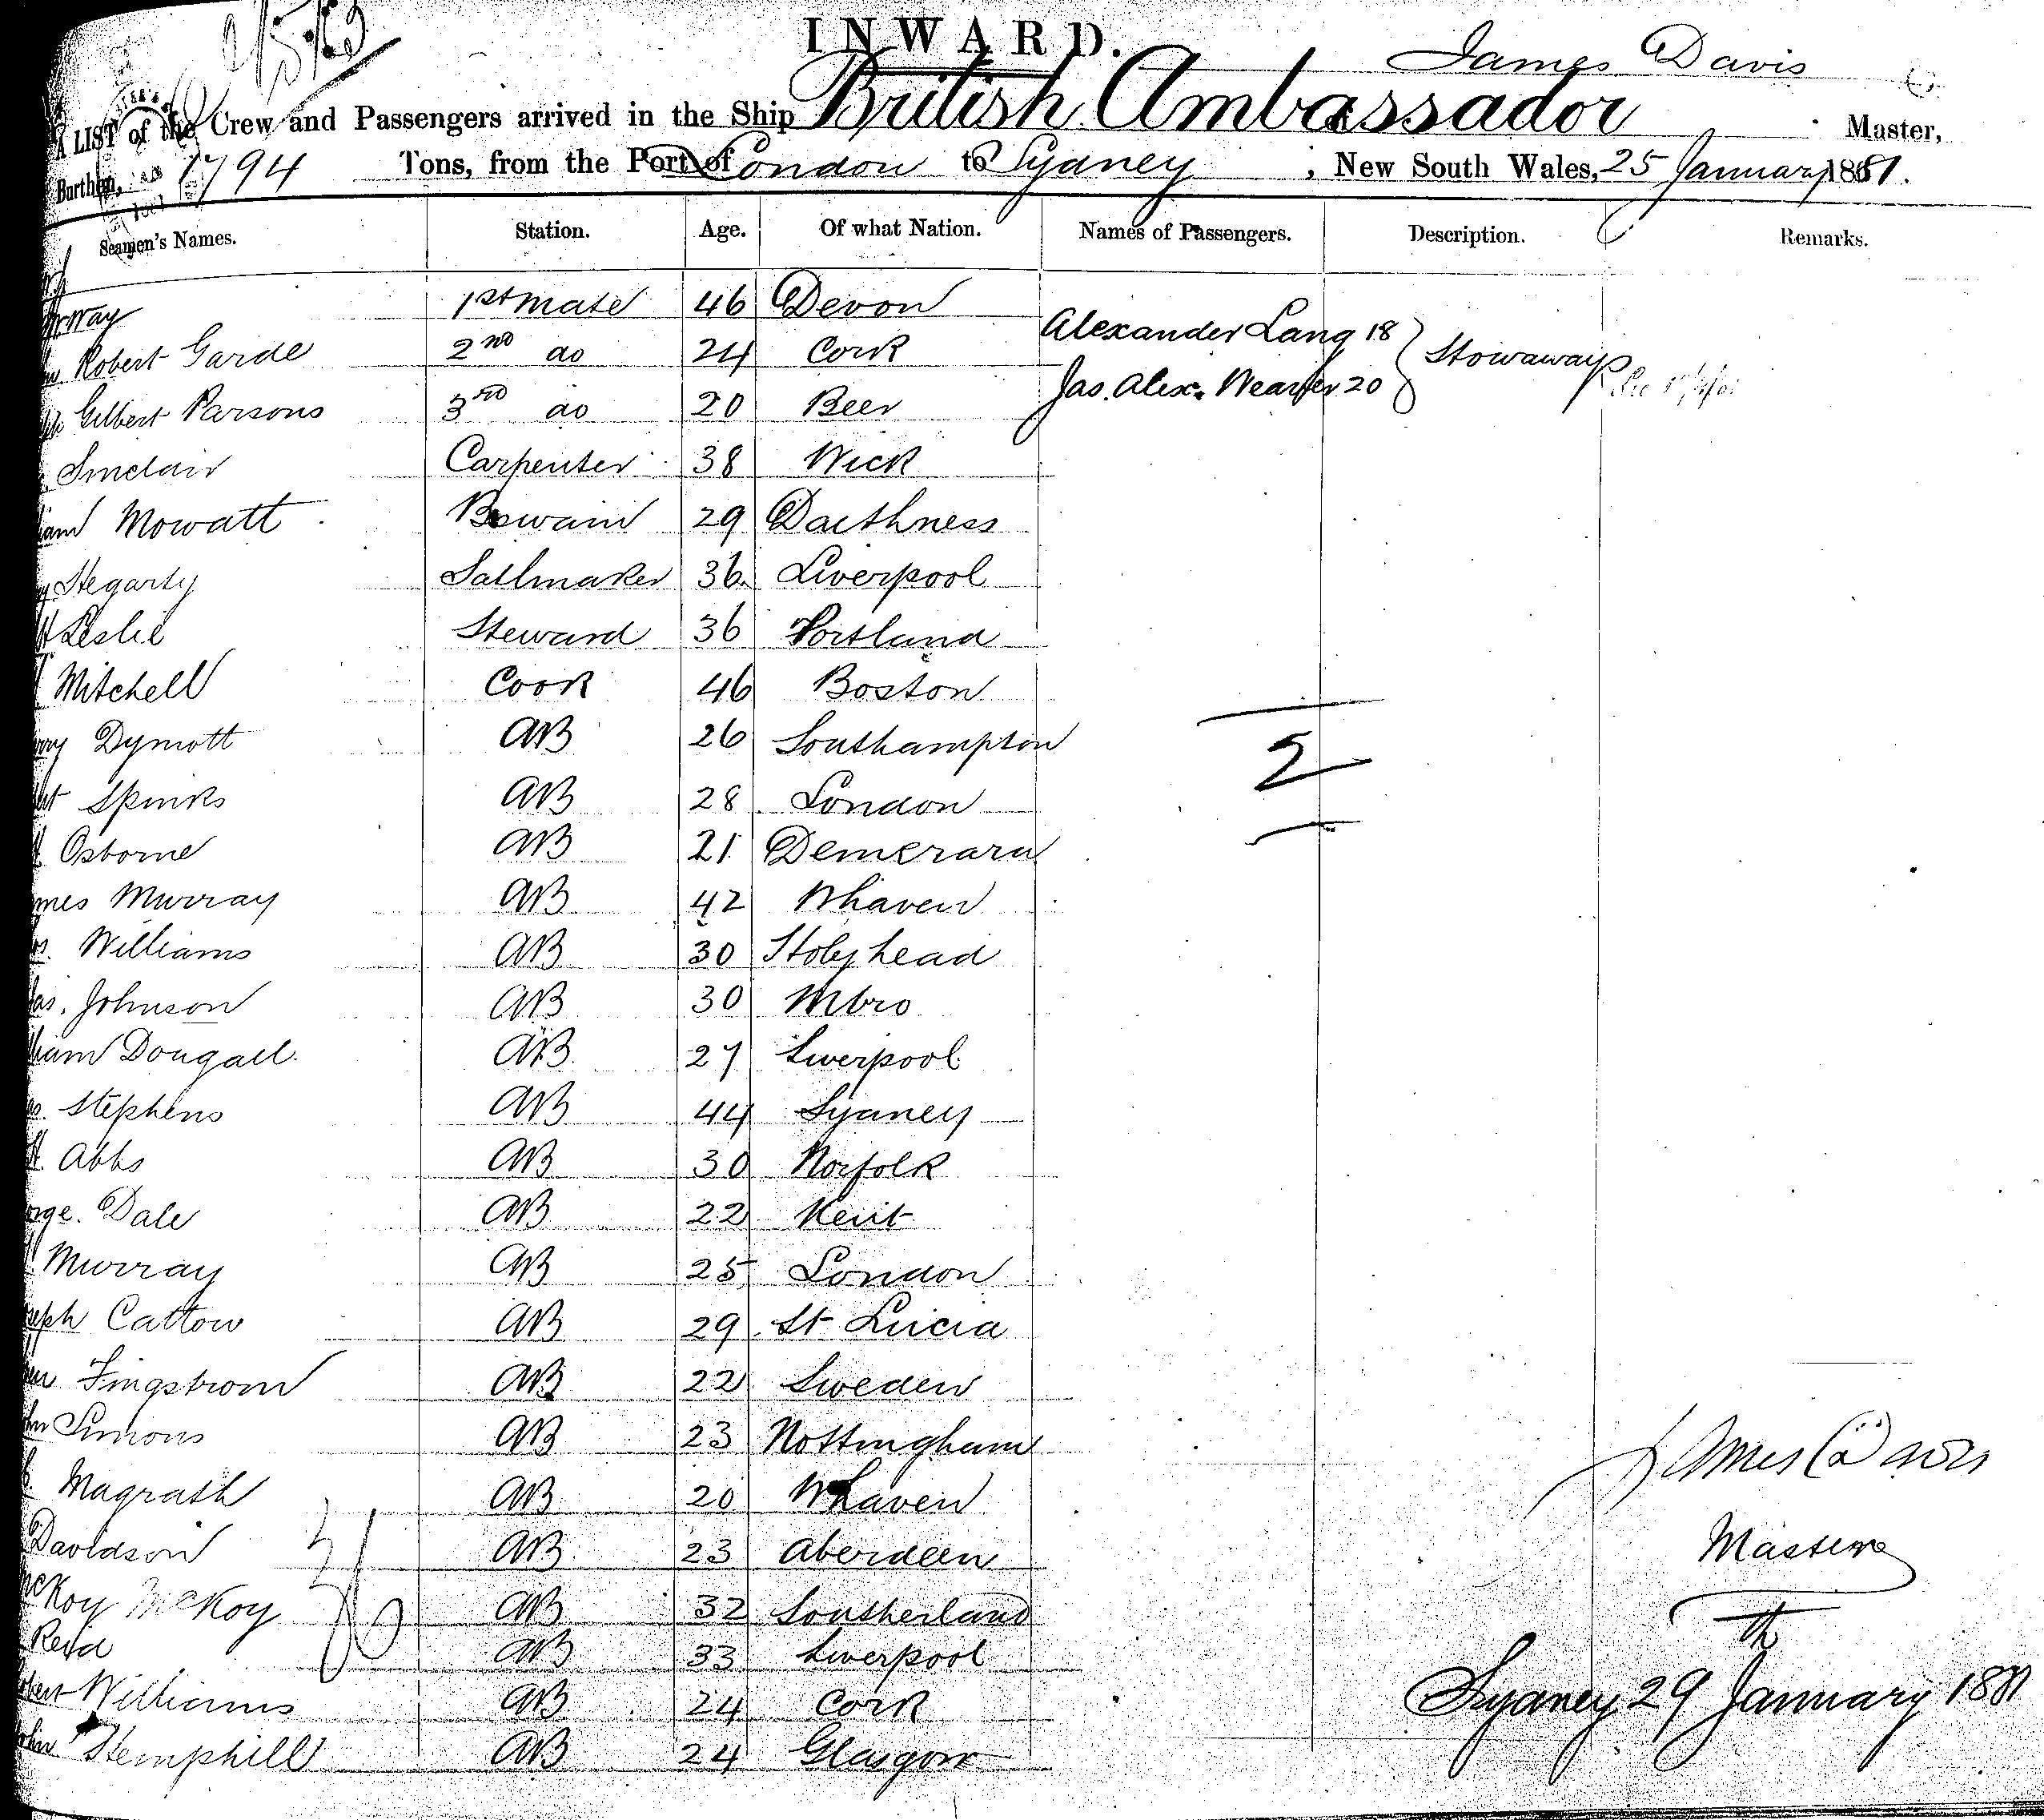 INWARD.
James Davis
A LIST of the Crew and Passengers arrived in the Ship British Ambassador Master,
Burthen, 1794 Tons, from the Port of London to Sydney, New South Wales, 25 January 1881.
Seamen's Names. Station. Age. Of what Nation. Names of Passengers. Description. Remarks.
way 1st mate 46 Devon
Robert Garde 2nd do 24 Cork Alexander Lang 18 Stowaways
Gilbert Parsons 3rd do 20 Beer Jas. Alex. 20
Sinclair Carpenter 38 Wick
iam Mowatt Boswain 29 Daithness
Hegarty Sailmaker 36 Liverpool
Leslie Steward 36 Portland
Mitchell Cook 46 Boston
rry Dymott AB 26 Southampton
Spinks AB 28 London
2
Osborne AB 21 Demerara
mes Murray AB 42 Whaven
s. Williams AB 30 Holyhead
as. Johnson AB 30 Mbro
liam Dougall AB 27 Liverpool
Stephens AB 44 Sydney
Abbs AB 30 Norfolk
orge. Dale AB 22 Kent
Murray AB 25 London
seph Cattow AB 29 St Lucia
Fingstrom AB 22 Sweden
hn Simons AB 23 Nottingham
Magrath AB 20 Whaven
James Davis
Davidson AB 23 Aberdeen
Master
McKoy McKoy AB 32 Southerland
Reid AB 33 Liverpool
bert Williams AB 24 Cork
Sydney 29th January 1881
ohn Hemphill AB 24 Glasgow